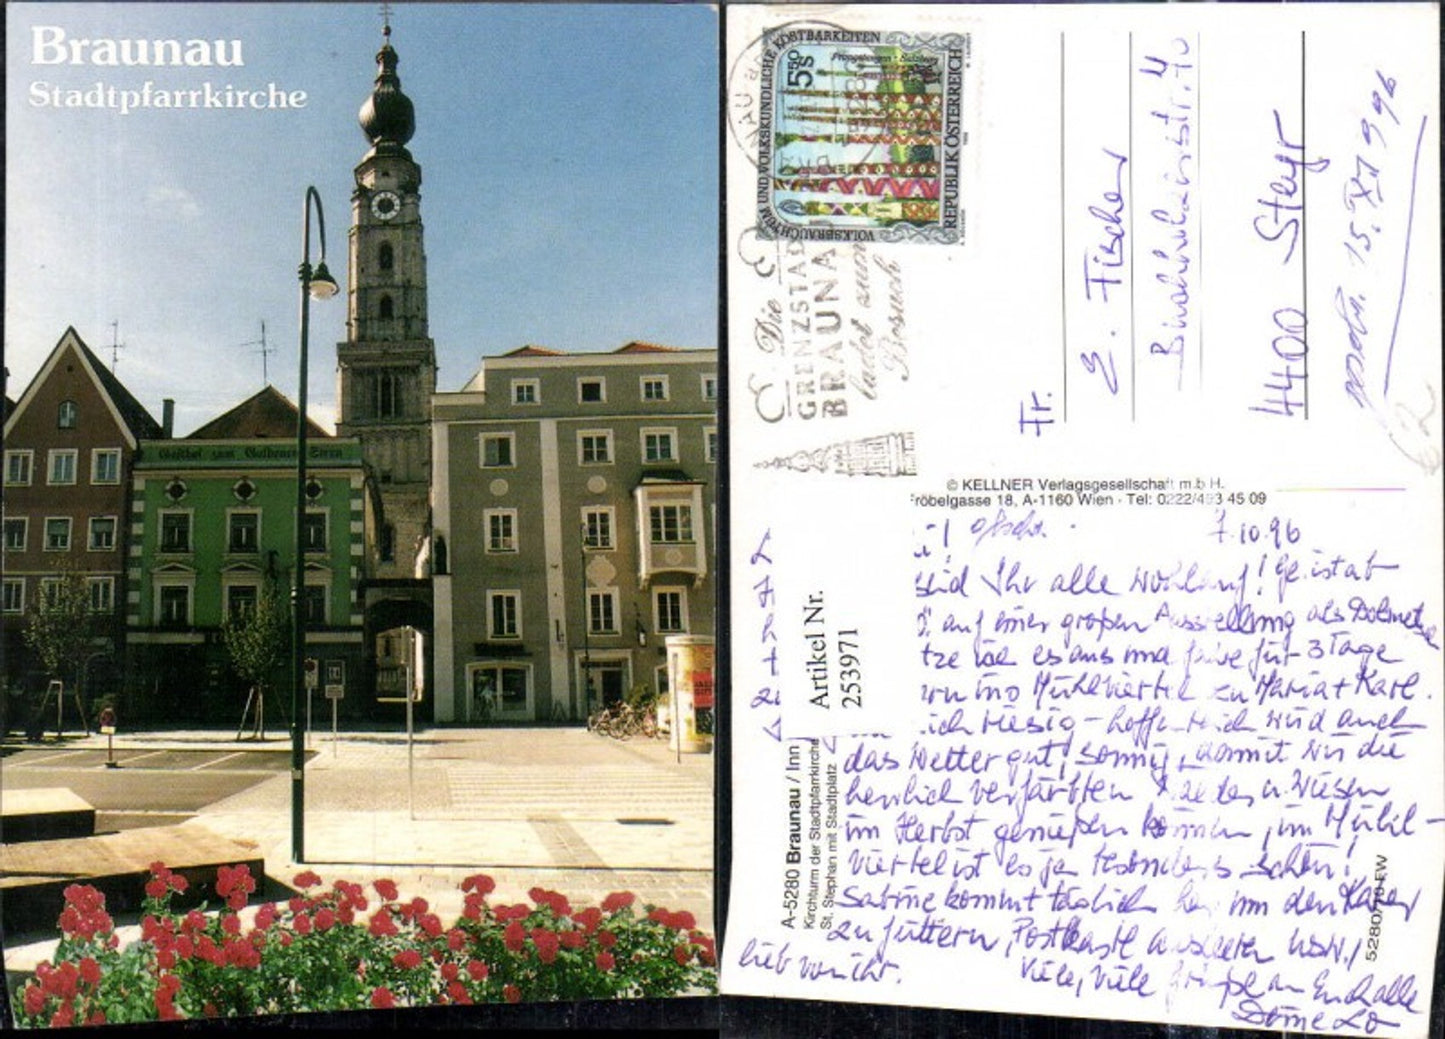 Braunau
Stadtpfarrkirche
Gasthof zum Goldenen Stern
VOLKSBRAUCHTUM UND VOLKSKUNDLICHE KOSTBARKEITEN
5 50 S
Prangstangen - Salzburg
REPUBLIK ÖSTERREICH
Die
GRENZSTADT
BRAUNAU
ladet zum
Besuch
Fr.
E. Fischer
4400 Steyr
© KELLNER Verlagsgesellschaft m.b.H.
röbelgasse 18, A-1160 Wien · Tel: 0222/493 45 09
7.10.96
seid Ihr alle wohlauf! Ge. ist ab
auf einer großen Ausstellung als Dolmetsche
es aus und fahre für 3 Tage
ins Mühlviertel zu Maria + Karl.
ich riesig - hoffentlich wird auch
das Wetter gut, sonnig, damit wir die
herrlich verfärbten Wälder u. Wiesen
im Herbst genießen können, im Mühl-
viertel ist es ja besonders schön!
Sabine kommt täglich her um den Kater
zu füttern, Postkastl ausleeren usw.,
lieb von ihr.
Viele, viele Grüße an Euch alle
Artikel Nr.
253971
A-5280 Braunau / Inn
Kirchturm der Stadtpfarrkirche
St. Stephan mit Stadtplatz
5280/70 EW